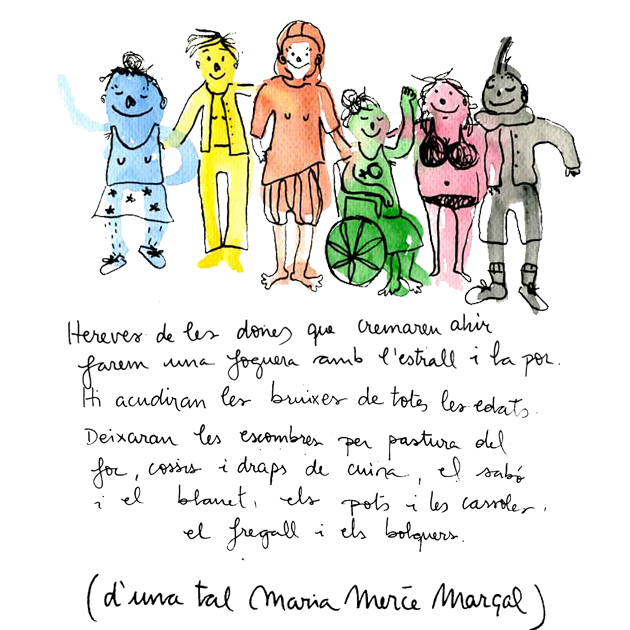 Hereves de les dones que cremaren ahir
farem una foguera amb l'estrall i la por.
Hi acudiran les bruixes de totes les edats.
Deixaran les escombres per pastura del
foc, cossis i draps de cuina, el sabó
i el blauet, els pots i les cassoles,
el fregall i els bolquers.
(d'una tal Maria Mercè Marçal)